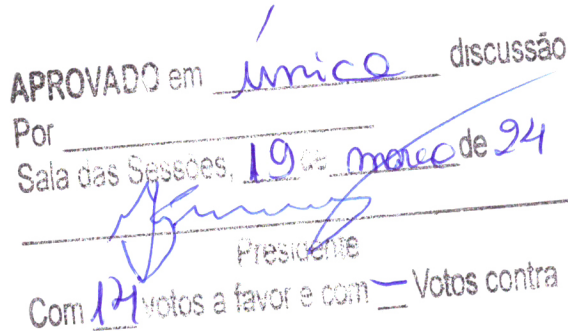 APROVADO em única discussão
Por
Sala das Sessões, 19 de março de 24
Presidente
Com 14 votos a favor e com — Votos contra